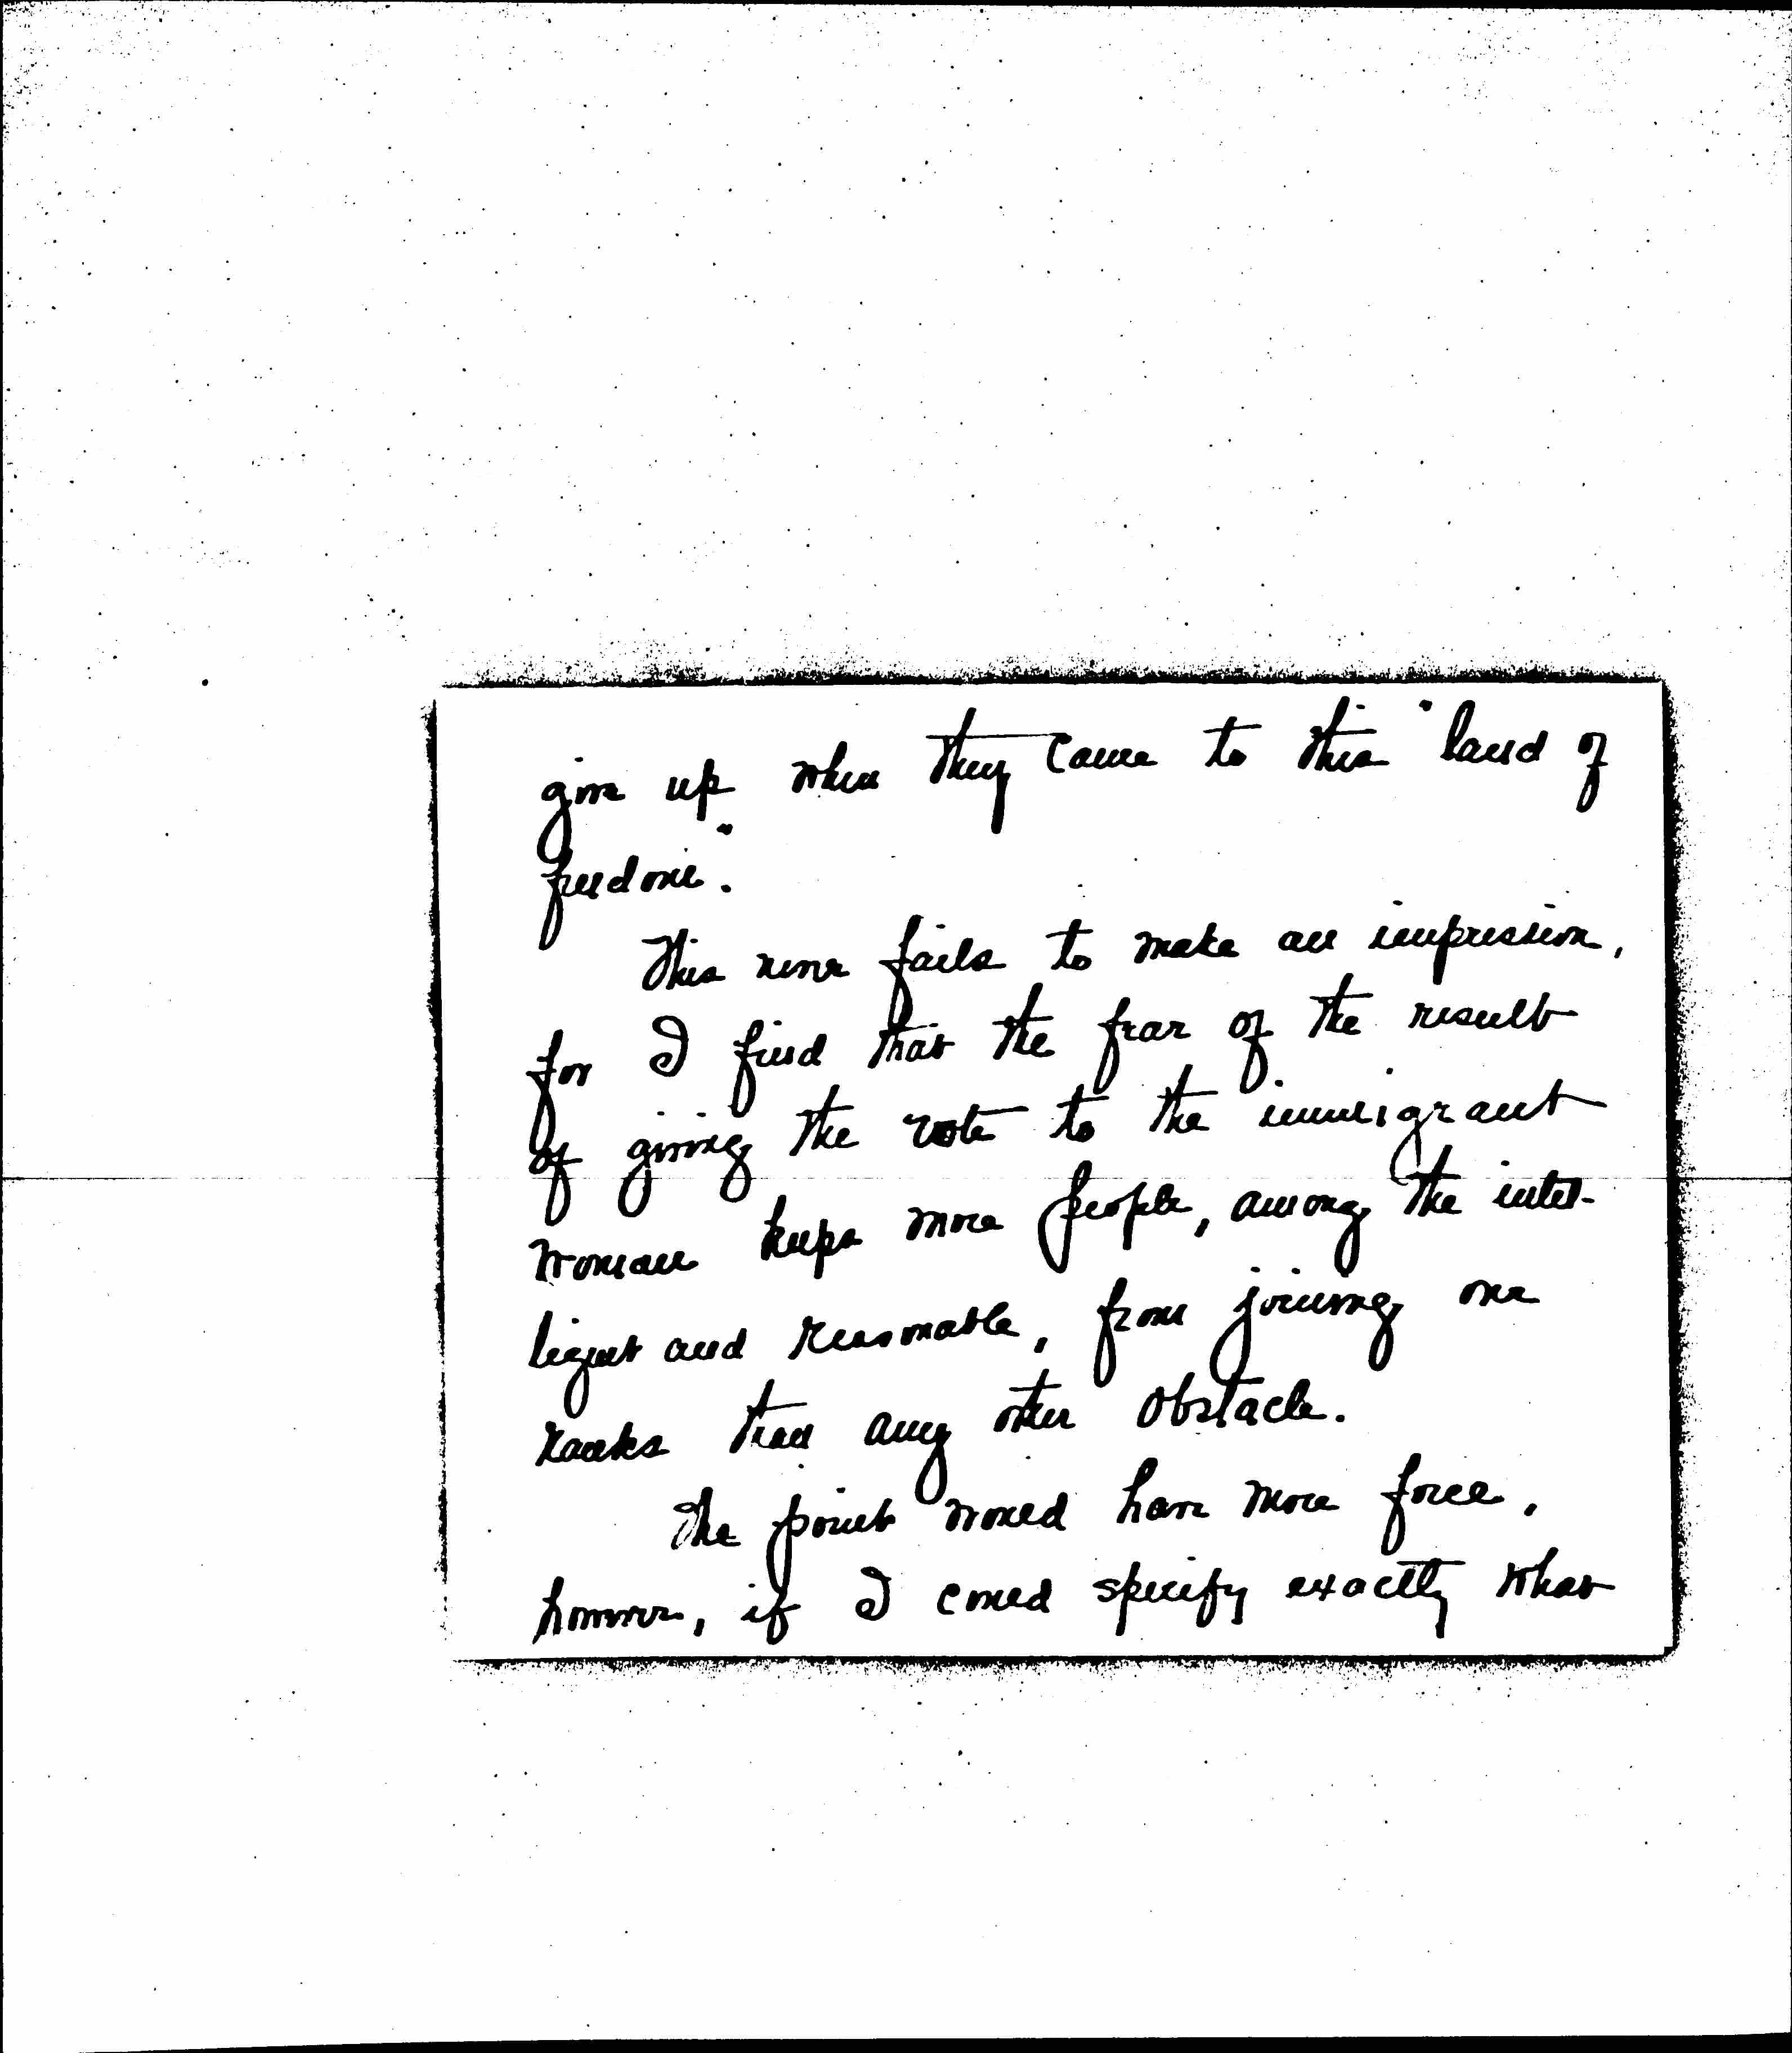 give up when they came to this "land of
freedom".
This never fails to make an impression,
for I find that the fear of the result
of giving the vote to the immigrant
woman keeps more people, among the intel-
ligent and reasonable, from joining our
ranks than any other obstacle.
The point would have more force,
however, if I could specify exactly what